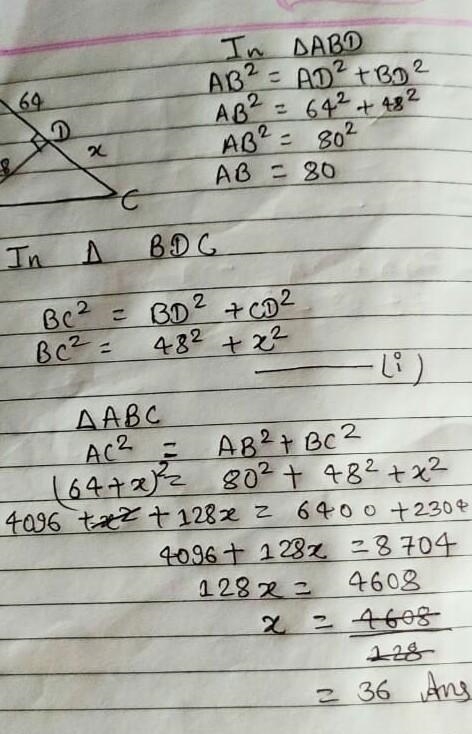 In ΔABD
AB² = AD² + BD²
AB² = 64² + 48²
AB² = 80²
AB = 80
64
D
x
8
C
In Δ BDC
BC² = BD² + CD²
BC² = 48² + x²
(i)
ΔABC
AC² = AB² + BC²
(64+x)² = 80² + 48² + x²
4096 + x² + 128x = 6400 + 2304
4096 + 128x = 8704
128x = 4608
x = 4608
128
= 36 Ans